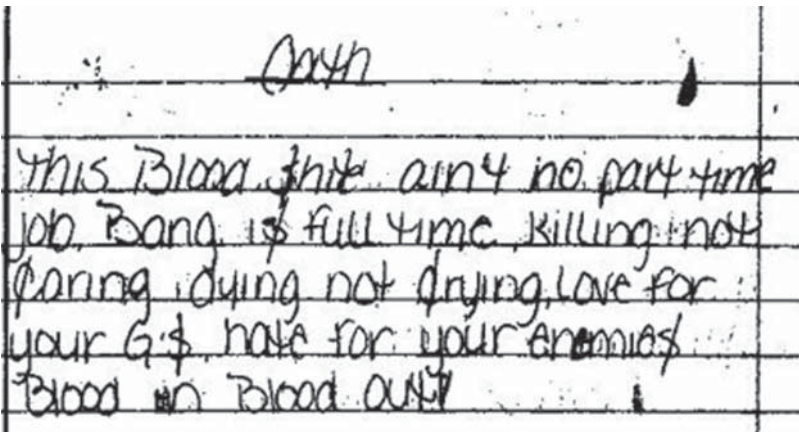 Oath
This Blood $hit ain't no part time
job. Bang i$ full time, killing not
caring, dying not crying, Love for
your G'$, hate for your enemie$
Blood in Blood out!